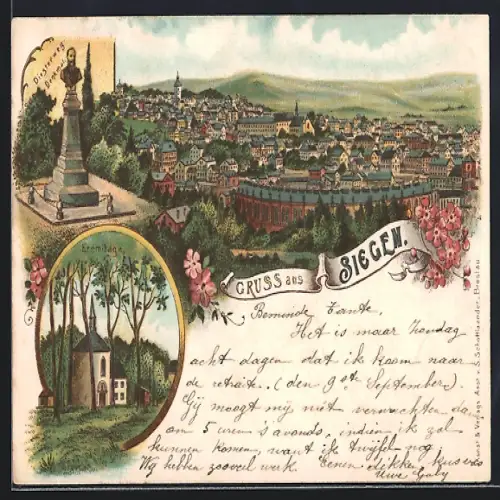 Diesterweg
Denkmal
Eremitage
GRUSS aus SIEGEN.
Beminde Tante,
Het is maar Zondag
acht dagen dat ik koom naar
de retraite. (den 9en September).
Gij moogt mij niet verwachten
om 5 uren 's avonds, indien ik zal
kunnen komen, want ik twijfel nog
Wij hebben zooveel werk. Eenen dikken kus van
Uwe Gaby
Kunst- & Verlags-Anst. v. S. Schottlaender, Breslau